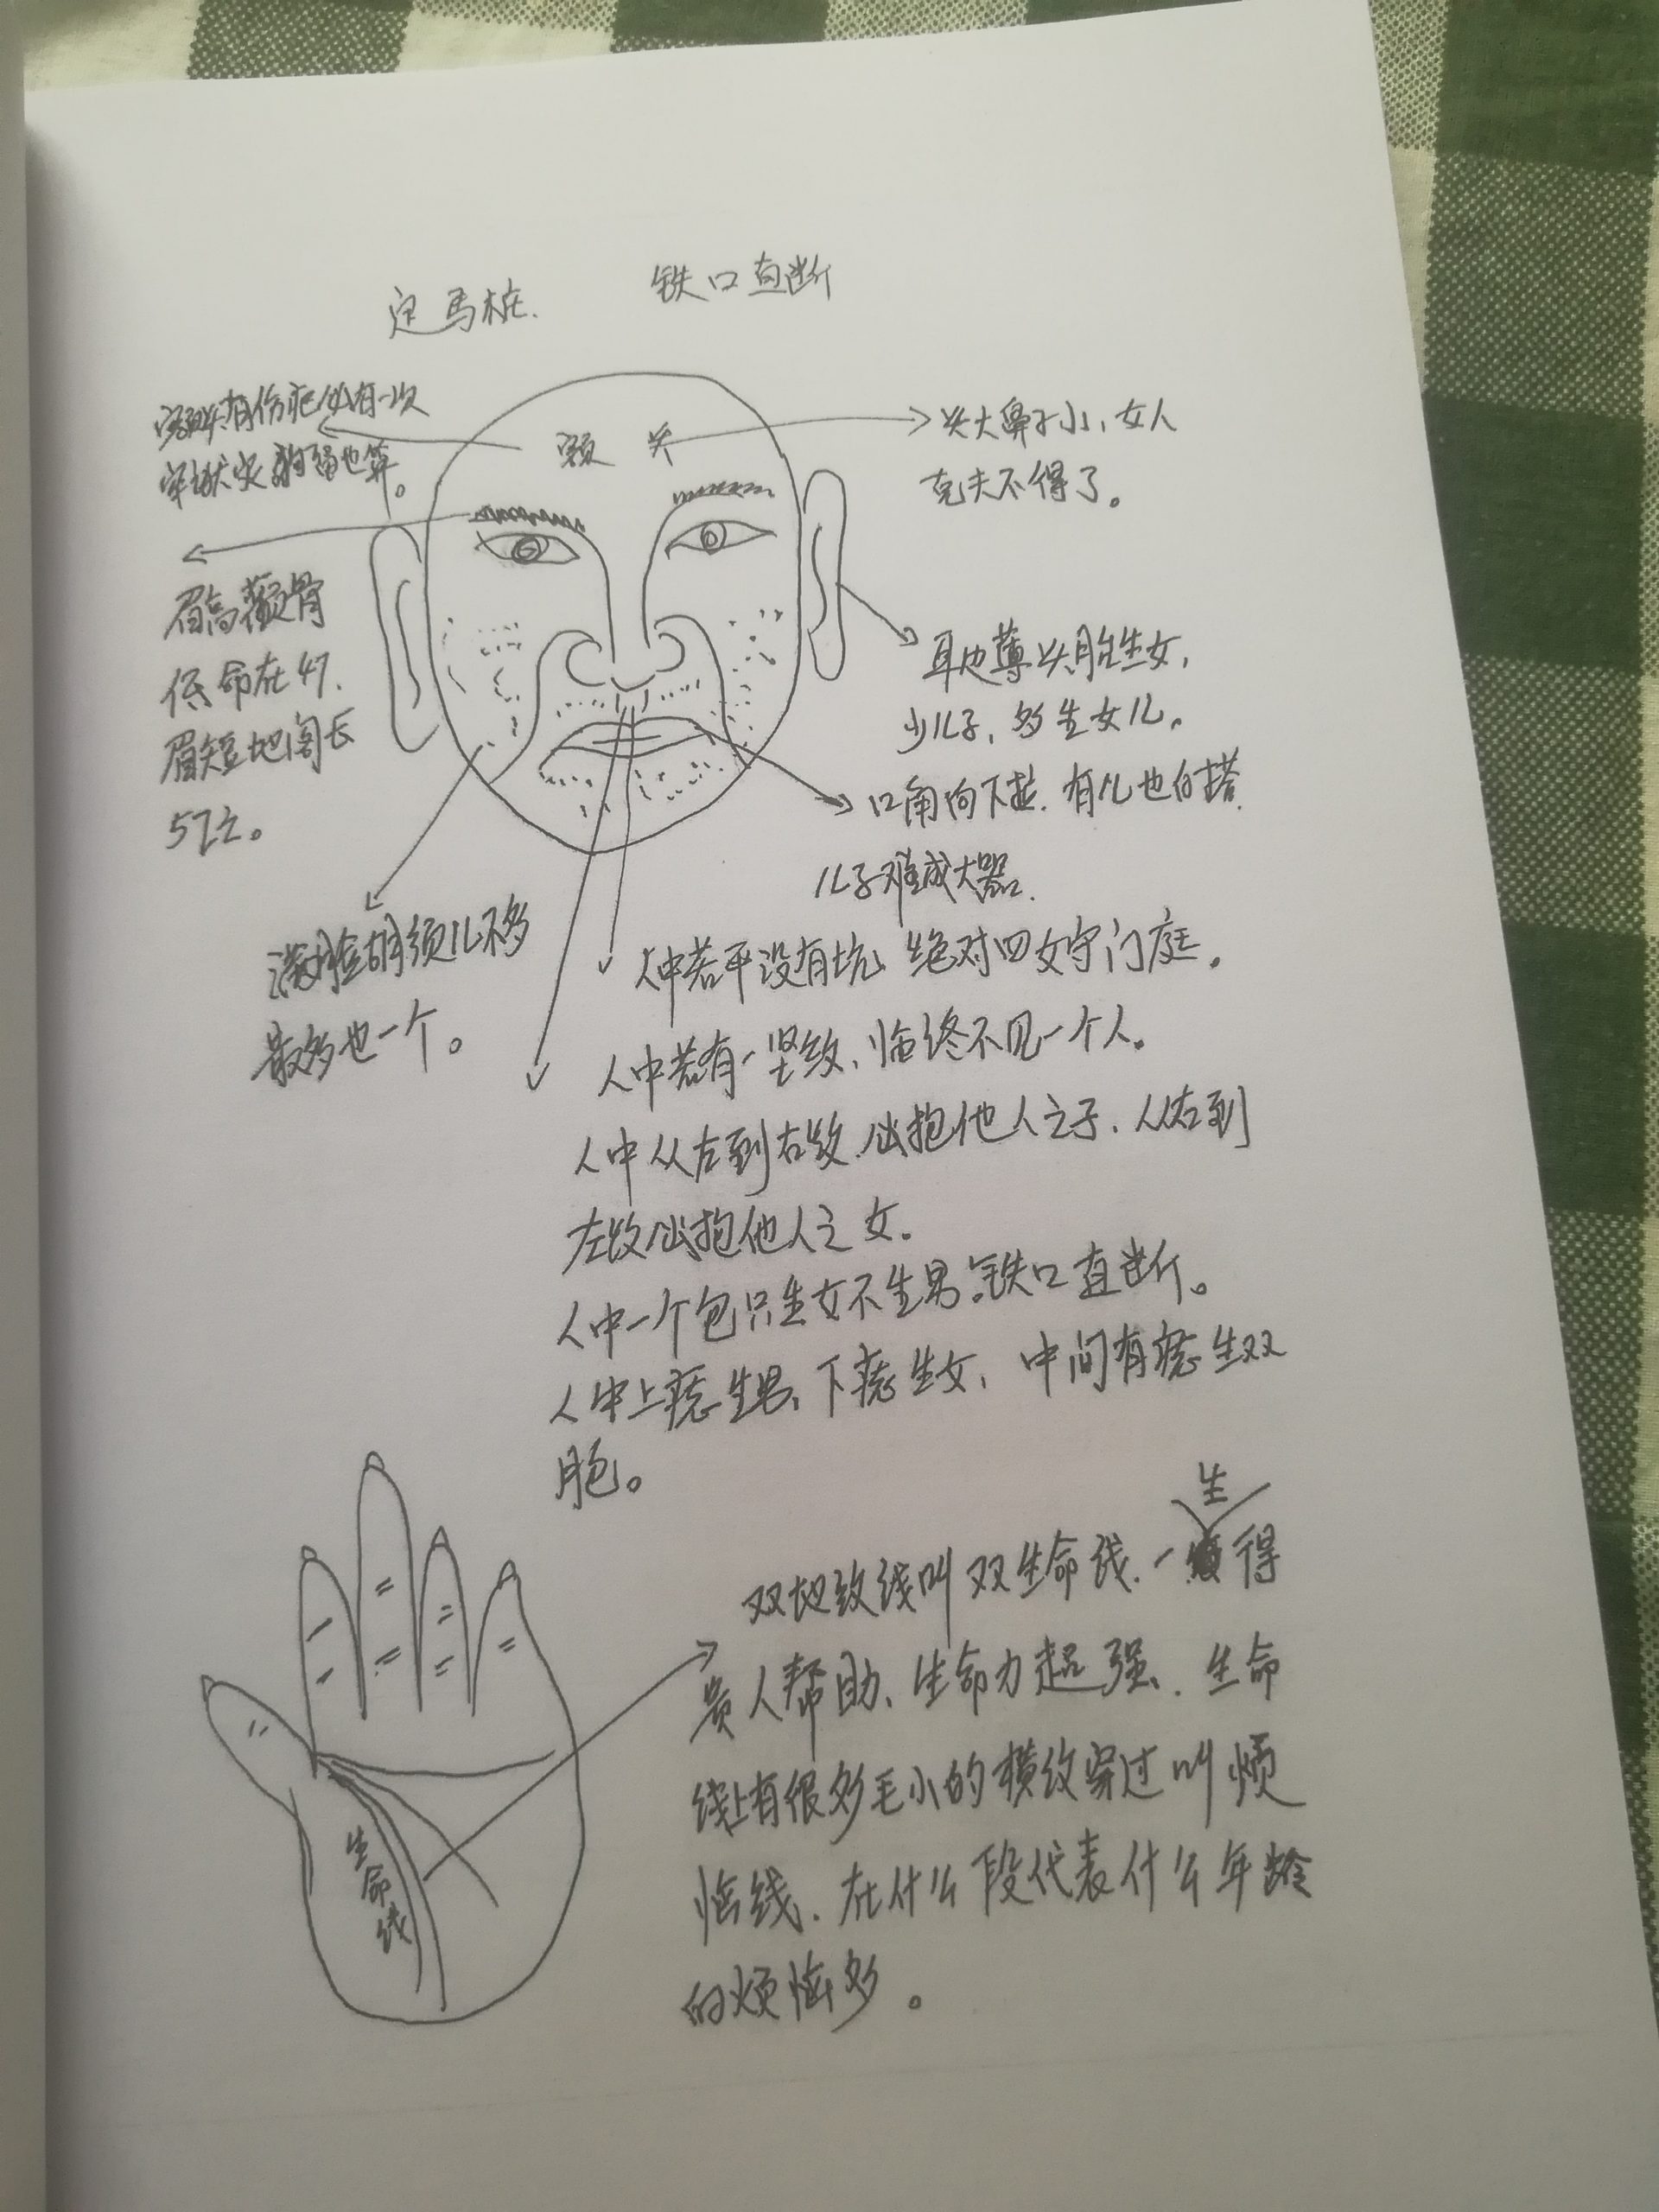 定马桩. 铁口直断
额头有伤疤必有一次
牢狱灾 拘留也算。
额头
头大鼻子小、女人
克夫不得了。
眉高颧骨
低 命在47.
眉短地阁长
57亡。
耳边薄头胎生女,
少儿子、多生女儿。
口角向下拉. 有儿也白搭.
儿子难成大器.
满脸胡须儿不多
最多也一个。
人中若平没有坑 绝对四女守门庭.
人中若有一竖纹、临终不见一个人.
人中从左到右纹.必抱他人之子. 从右到
左纹必抱他人之女.
人中一个包只生女不生男.铁口直断。
人中上痣生男、下痣生女、中间有痣生双
胞。
双地纹线叫双生命线. 一生得
贵人帮助、生命力超强、生命
线上有很多毛小的横纹穿过叫烦
恼线、在什么段代表什么年龄
的烦恼多。
生命线